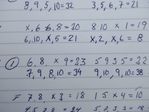 8, 9, 5, 10=32 3, 5, 6, 7=21
x, 6, 6, 8=20 8 10 x 1=19
6, 10, x, 5=21 x, 2, x, 6=8
6, 8, x 9=23 5 9 3 5=22
7, 9, 8, 10=34 9, 10, 9, 10=38
7 8, x 3=18 1 5 x 4=10